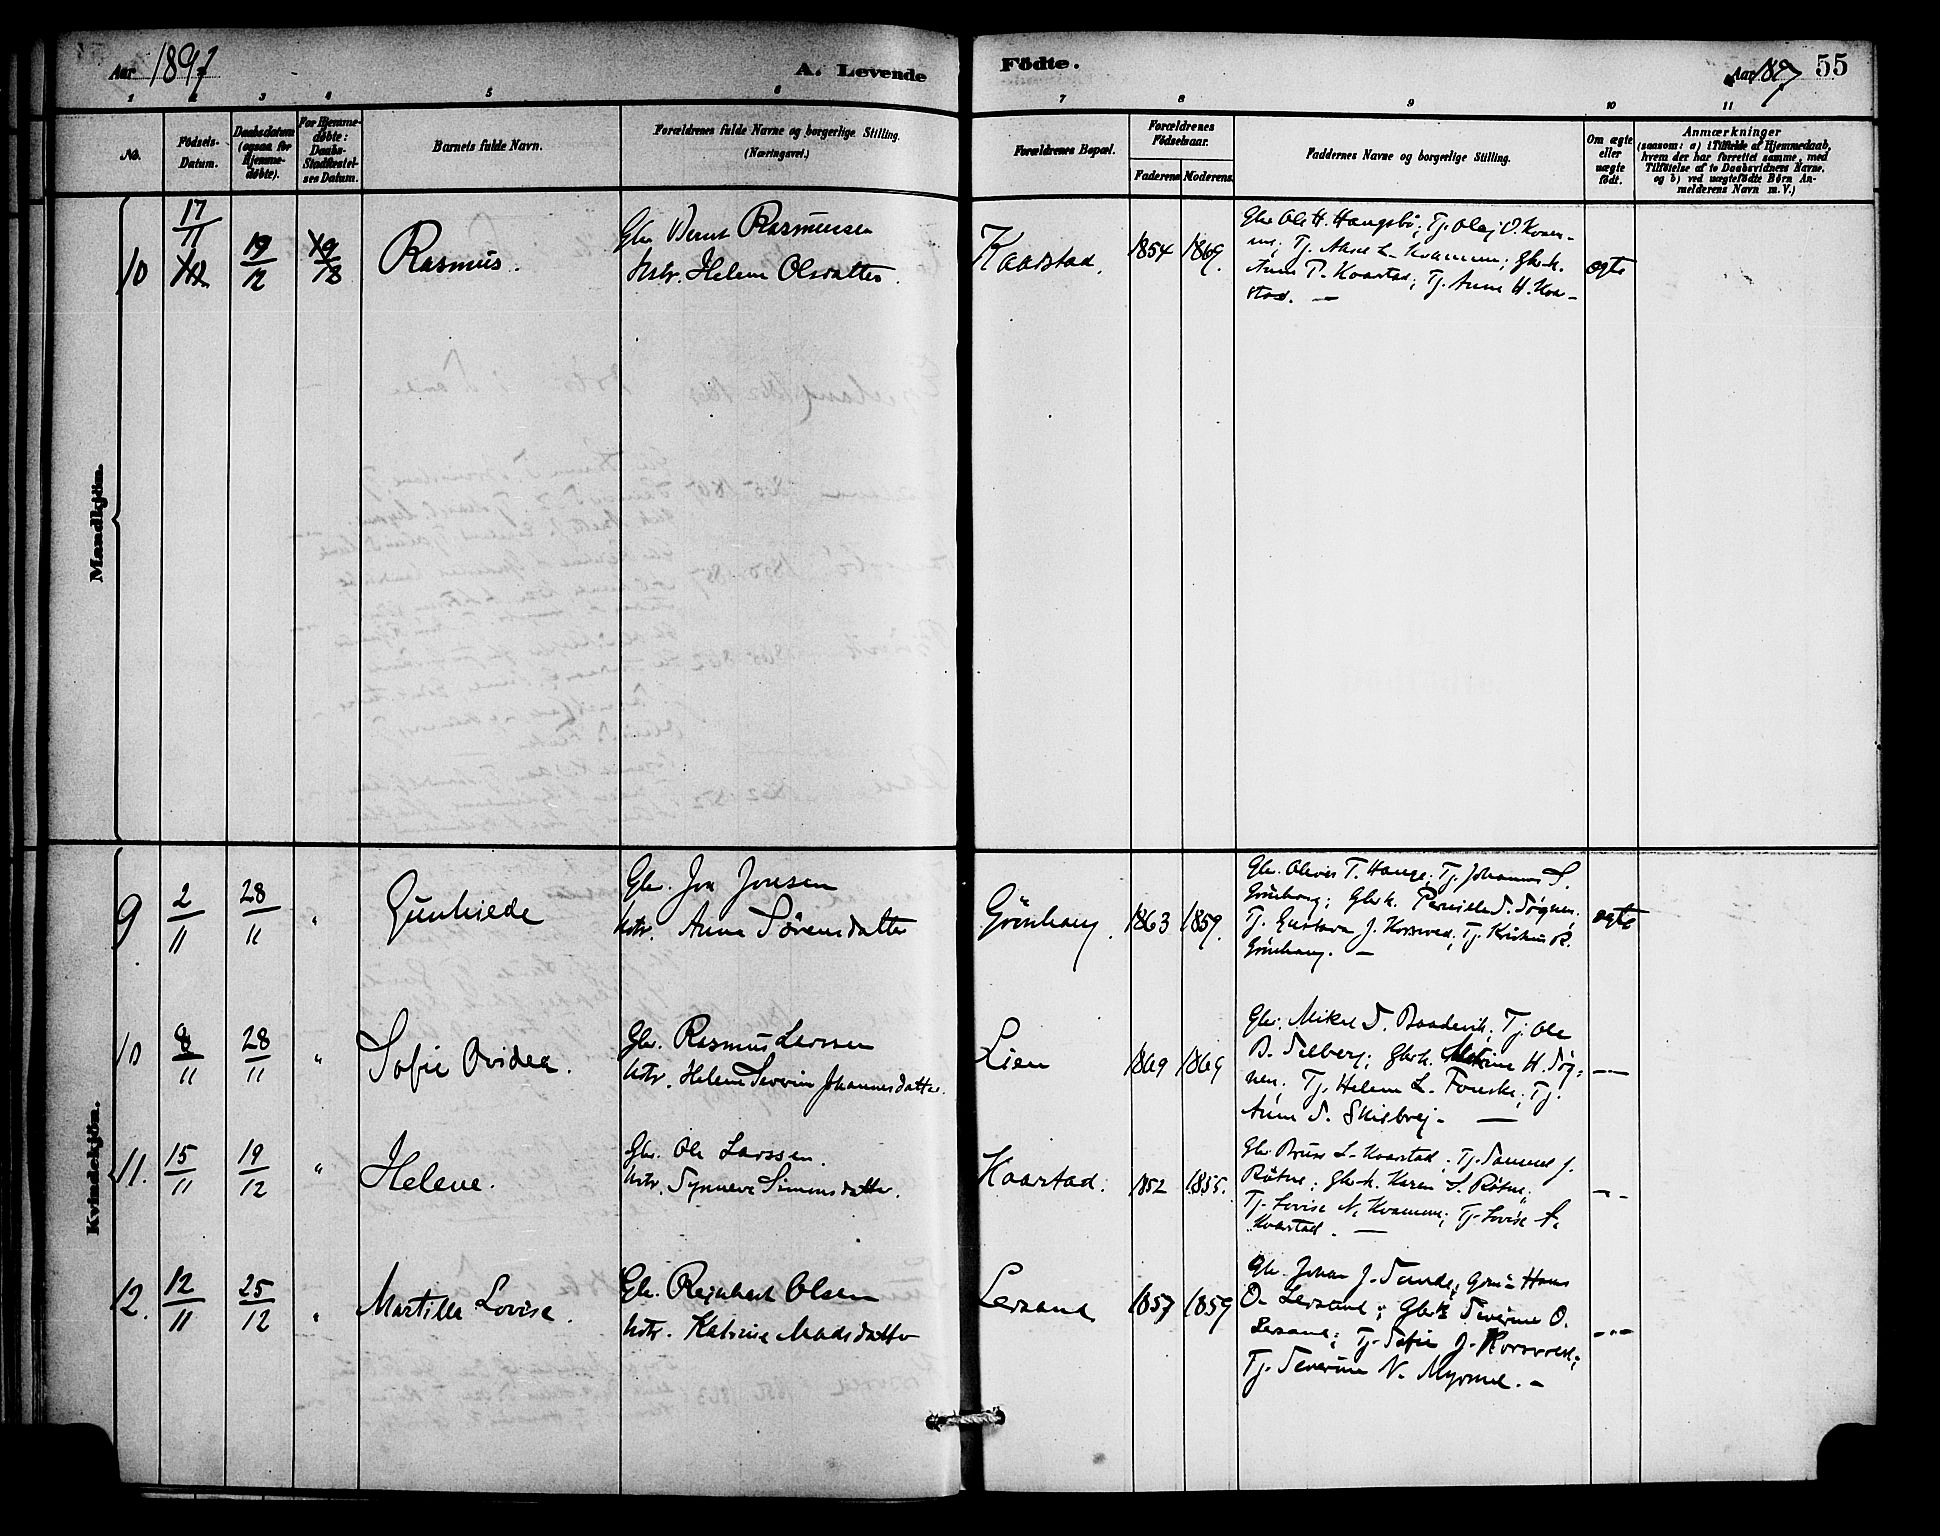 Aar 1897
A. Levende
Födte.
Aar 1897
55
1 2 3 4 5 6
7 8 9 10 11
No.
Födsels-
Datum.
Daabsdatum
(ogsaa for
Hjemme-
døbte).
For Hjemme-
døbte:
Daabs-
Stadfæstel-
ses Datum.
Barnets fulde Navn.
Forældrenes fulde Navne og borgerlige Stilling.
(Næringsvei.)
Forældrenes Bopæl.
Forældrenes
Födselsaar.
Faderens Moderens
Faddernes Navne og borgerlige Stilling.
Om ægte
eller
uægte
født.
Anmærkninger
(saasom: a) i Tilfælde af Hjemmedaab,
hvem der har forrettet samme, med
Tilföielse af to Daabsvidners Navne,
og b) ved uægtefödte Börn An-
melderens Navn m. V.)
Mandkjön.
10
17
11
19
12
Rasmus.
Gbr. Bernt Rasmussen
Hstr. Helene Olsdatter.
Kaarstad.
1854 1869.
Gbr. Ole H. Haugsbö; Tj. Olaj O. Kvam-
me; Tj. Anne L. Kvamme; Gbrk.
Anne T. Kaarstad; Tj. Anne H. Kaar-
stad. —
ægte
Kvindekjön.
9
2
11
28
11
"
Gunhilde
Gbr. Jon Jonsen
Hstr. Anna Sörensdatter
Grönhaug.
1863 1859.
Gbr. Oliver T. Hauge; Tj. Johannes S.
Grönhaug; Gbrk. Pernille S. Søgnen;
Tj. Gustava J. Korsvold; Tj. R.
Grönhaug. —
ægte
10
8
11
28
11
"
Sofie Ovidea.
Gbr. Rasmus Larssen
Hstr. Helene Severine Johannesdatter.
Lien
1869 1869
Gbr. Mikal S. Tj. Ole
B. Gbrk. H. Søg-
nen. Tj. Helene L. Tj.
Anne S. Skilbrej. —
—
11.
15
11
19
12
"
Helene.
Gbr. Ole Larssen.
Hstr. Synneve Simonsdatter.
Kaarstad.
1852 1855.
Gbr. L. Kaarstad; Tj. Samuel J.
Røtne; Gbrk. Karen S. Røtne;
Tj. Lovise N. Kvamme; Tj. Lovise S.
Kaarstad. —
—
12.
12
11
25
12
"
Martille Lovise.
Gbr. Reinhart Olsen
Hstr. Katrine Madsdatter
Lersand
1857 1859
Gbr. Johan J. Sunde; Hans
O. Lersand; Gbrk. Severine O.
Lersand; Tj. Sofie J. Korsvold;
Tj. Severine N. Myrmel. —
—